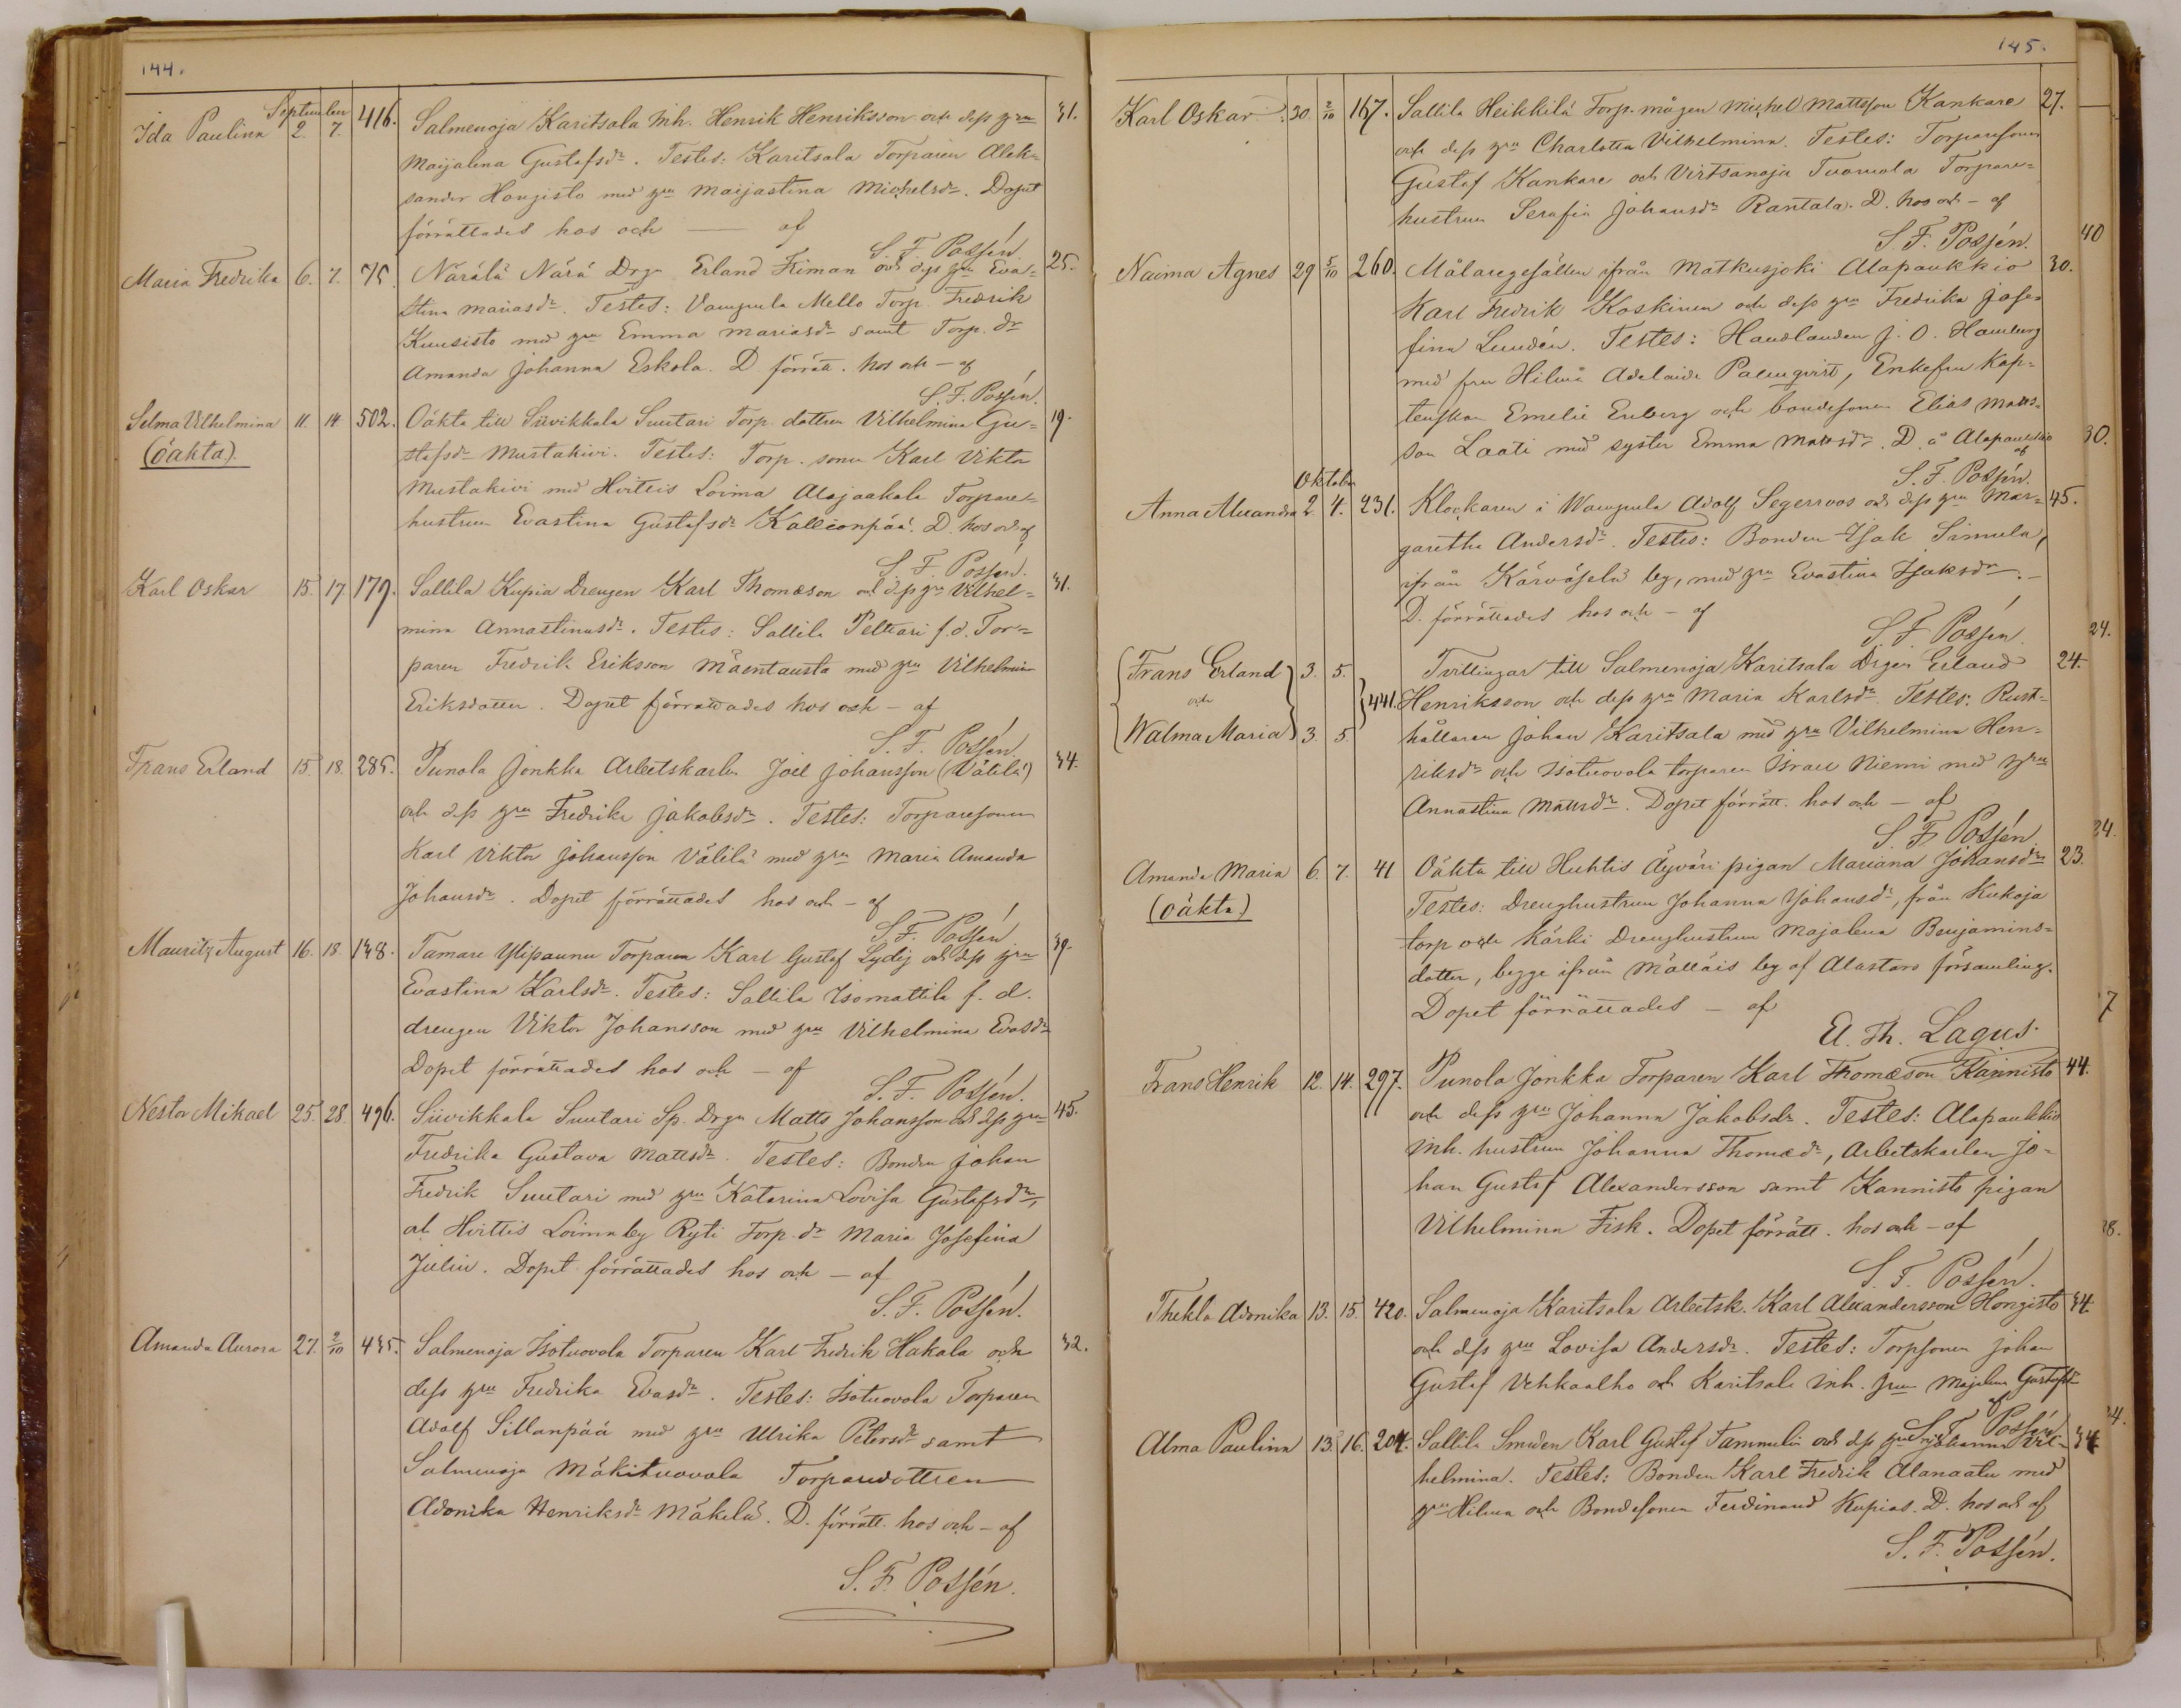 144.
September
Ida Paulina 2. 7. 416. Salmenoja Karitsala Inh. Henrik Henriksson och dess hru 31.
Maijalena Gustafsdr. Testes: Karitsala Torparen Alek=
sander Hongisto med hru Maijastina Michelsdr. Dopet
förrättades hos och — af
S. F. Possén.
Maria Fredrika 6. 7. 75. Närälä Närä Drgn Erland Friman och dess hru Eva= 25.
stina Mariasdr. Testes: Vampula Mello Torp. Fredrik
Kuusisto med hru Emma Mariasdr samt Torp. dr
Amanda Johanna Eskola. D. förrätt. hos och — af
S. F. Possén.
Selma Vilhelmina 11. 14 502. Oäkta till Siivikkala Suutari Torp. dottren Vilhelmina Gu= 19.
(oäkta). stafsdr Mustakivi. Testes: Torp. sonen Karl Viktor
Mustakivi med Hvittis Loima Alajaakala Torpare=
hustrun Evastina Gustafsdr Kallionpää. D. hos och af
S. F. Possén.
Karl Oskar 15. 17. 179. Sallila Kupia Drengen Karl Thomæson och dess hru Vilhel= 31.
mina Annastinasdr. Testes: Sallila Pelttari f.d. Tor=
paren Fredrik Eriksson Mäentausta med hru Vilhelmina
Eriksdotter. Dopet förrättades hos och — af
S. F. Possén.
Frans Erland 15. 18. 285. Punola Jonkka Arbetskarlen Joel Johansson (Välilä) 34.
och dess hru Fredrika Jakobsdr. Testes: Torparesonen
Karl Viktor Johansson Välilä med hru Maria Amanda
Johansdr. Dopet förrättades hos och — af
S. F. Possén
Mauritz August 16. 18. 138. Tamare Ylipaunu Torparen Karl Gustaf Lydij och dess hru 39.
Evastina Karlsdr. Testes: Sallila Isomattila f. d.
drengen Viktor Johansson med hru Vilhelmina Evasdr
Dopet förrättades hos och — af
S. F. Possén.
Nestor Mikael 25. 28. 496. Siivikkala Suutari Sp. Drgn Matts Johansson och dess hru 45.
Fredrika Gustava Mattsdr. Testes: Bonden Johan
Fredrik Suutari med hru Katarina Lovisa Gustafsdr,
och Hvittis Loima by Ryti Torp. dr Maria Josefina
Julin. Dopet förrättades hos och — af
S. F. Possén.
Amanda Aurora 27. 2/10 435. Salmenoja Isotuovola Torparen Karl Fredrik Hakala och 32.
dess hru Fredrika Evasdr. Testes: Isotuovola Torparen
Adolf Sillanpää med hru Ulrika Petersdr samt
Salmenoja Mäkituovola Torparedottren
Adonika Henriksdr Mäkelä. D. förrätt. hos och — af
S. F. Possén.
145.
Karl Oskar 30. 2/10 167. Sallila Heikkilä Torp. mågen Michel Mattsson Kankare 27.
och dess hru Charlotta Vilhelmina. Testes: Torparesonen
Gustaf Kankare och Virtsanoja Tuomola Torpare=
hustrun Serafia Johansdr Rantala. D. hos och — af
S. F. Possén. 40
Naima Agnes 29 5/10 260. Målaregesällen ifrån Matkusjoki Alapaukkio 30.
Karl Fredrik Koskinen och dess hru Fredrika Jose=
fina Lundén. Testes: Handlanden J. O. Hamberg
med fru Hilma Adelaide Palmqvist, Enkefru Kap=
tenskan Emelie Enberg och bondesonen Elias Matts=
son Laati med syster Emma Mattsdr. D. å Alapaukkio 30.
af
S. F. Possén.
Oktober
Anna Alexandra 2 4. 231. Klockaren i Wampula Adolf Segerroos och dess hru Mar= 45.
garetha Andersdr. Testes: Bonden Isak Simula,
ifrån Kärväselä by, med hru Evastina Isaksdr. —
D. förrättades hos och — af
S. F. Possén. 24.
Frans Erland 3. 5. Tvillingar till Salmenoja Karitsala Drgen Erland 24.
och 441. Henriksson och dess hru Maria Karlsdr. Testes: Rust=
Walma Maria 3. 5. hållaren Johan Karitsala med hru Vilhelmina Hen=
riksdr och Isotuovola torparen Israel Niemi med hru
Annastina Mattsdr. Dopet förrätt. hos och — af
S. F. Possén 24.
Amanda Maria 6. 7. 41 Oäkta till Huhtis Äyväri pigan Mariana Johansdr 23.
(oäkta) Testes: Drenghustrun Johanna Johansdr, från Kukoja
torp och Kärki Drenghustrun Majalena Benjamins=
dotter, begge ifrån Mälläis by af Alastaro församling.
Dopet förrättades — af 7
A. Th. Lagus.
Frans Henrik 12. 14. 297. Punola Jonkka Torparen Karl Thomæson Kannisto 44.
och dess hru Johanna Jakobsdr. Testes: Alapaukkio
Inh. hustrun Johanna Thomædr, Arbetskarlen Jo=
han Gustaf Alexandersson samt Kannisto pigan
Vilhelmina Fisk. Dopet förrätt. hos och — af
S. F. Possén.
Thekla Adonika 13. 15. 420. Salmenoja Karitsala Arbetsk. Karl Alexandersson Hongisto 34.
och dess hru Lovisa Andersdr. Testes: Torpsonen Johan
Gustaf Vehkaalho och Karitsala Inh. hrun Majalena Gustafsdr
af
S. F. Possén.
Alma Paulina 13. 16. 204. Sallila Smeden Karl Gustaf Tammelin och dess hru Johanna Vil= 34
helmina. Testes: Bonden Karl Fredrik Alanaatu med
hru Hilma och Bondesonen Ferdinand Kupias. D. hos och af
S. F. Possén.